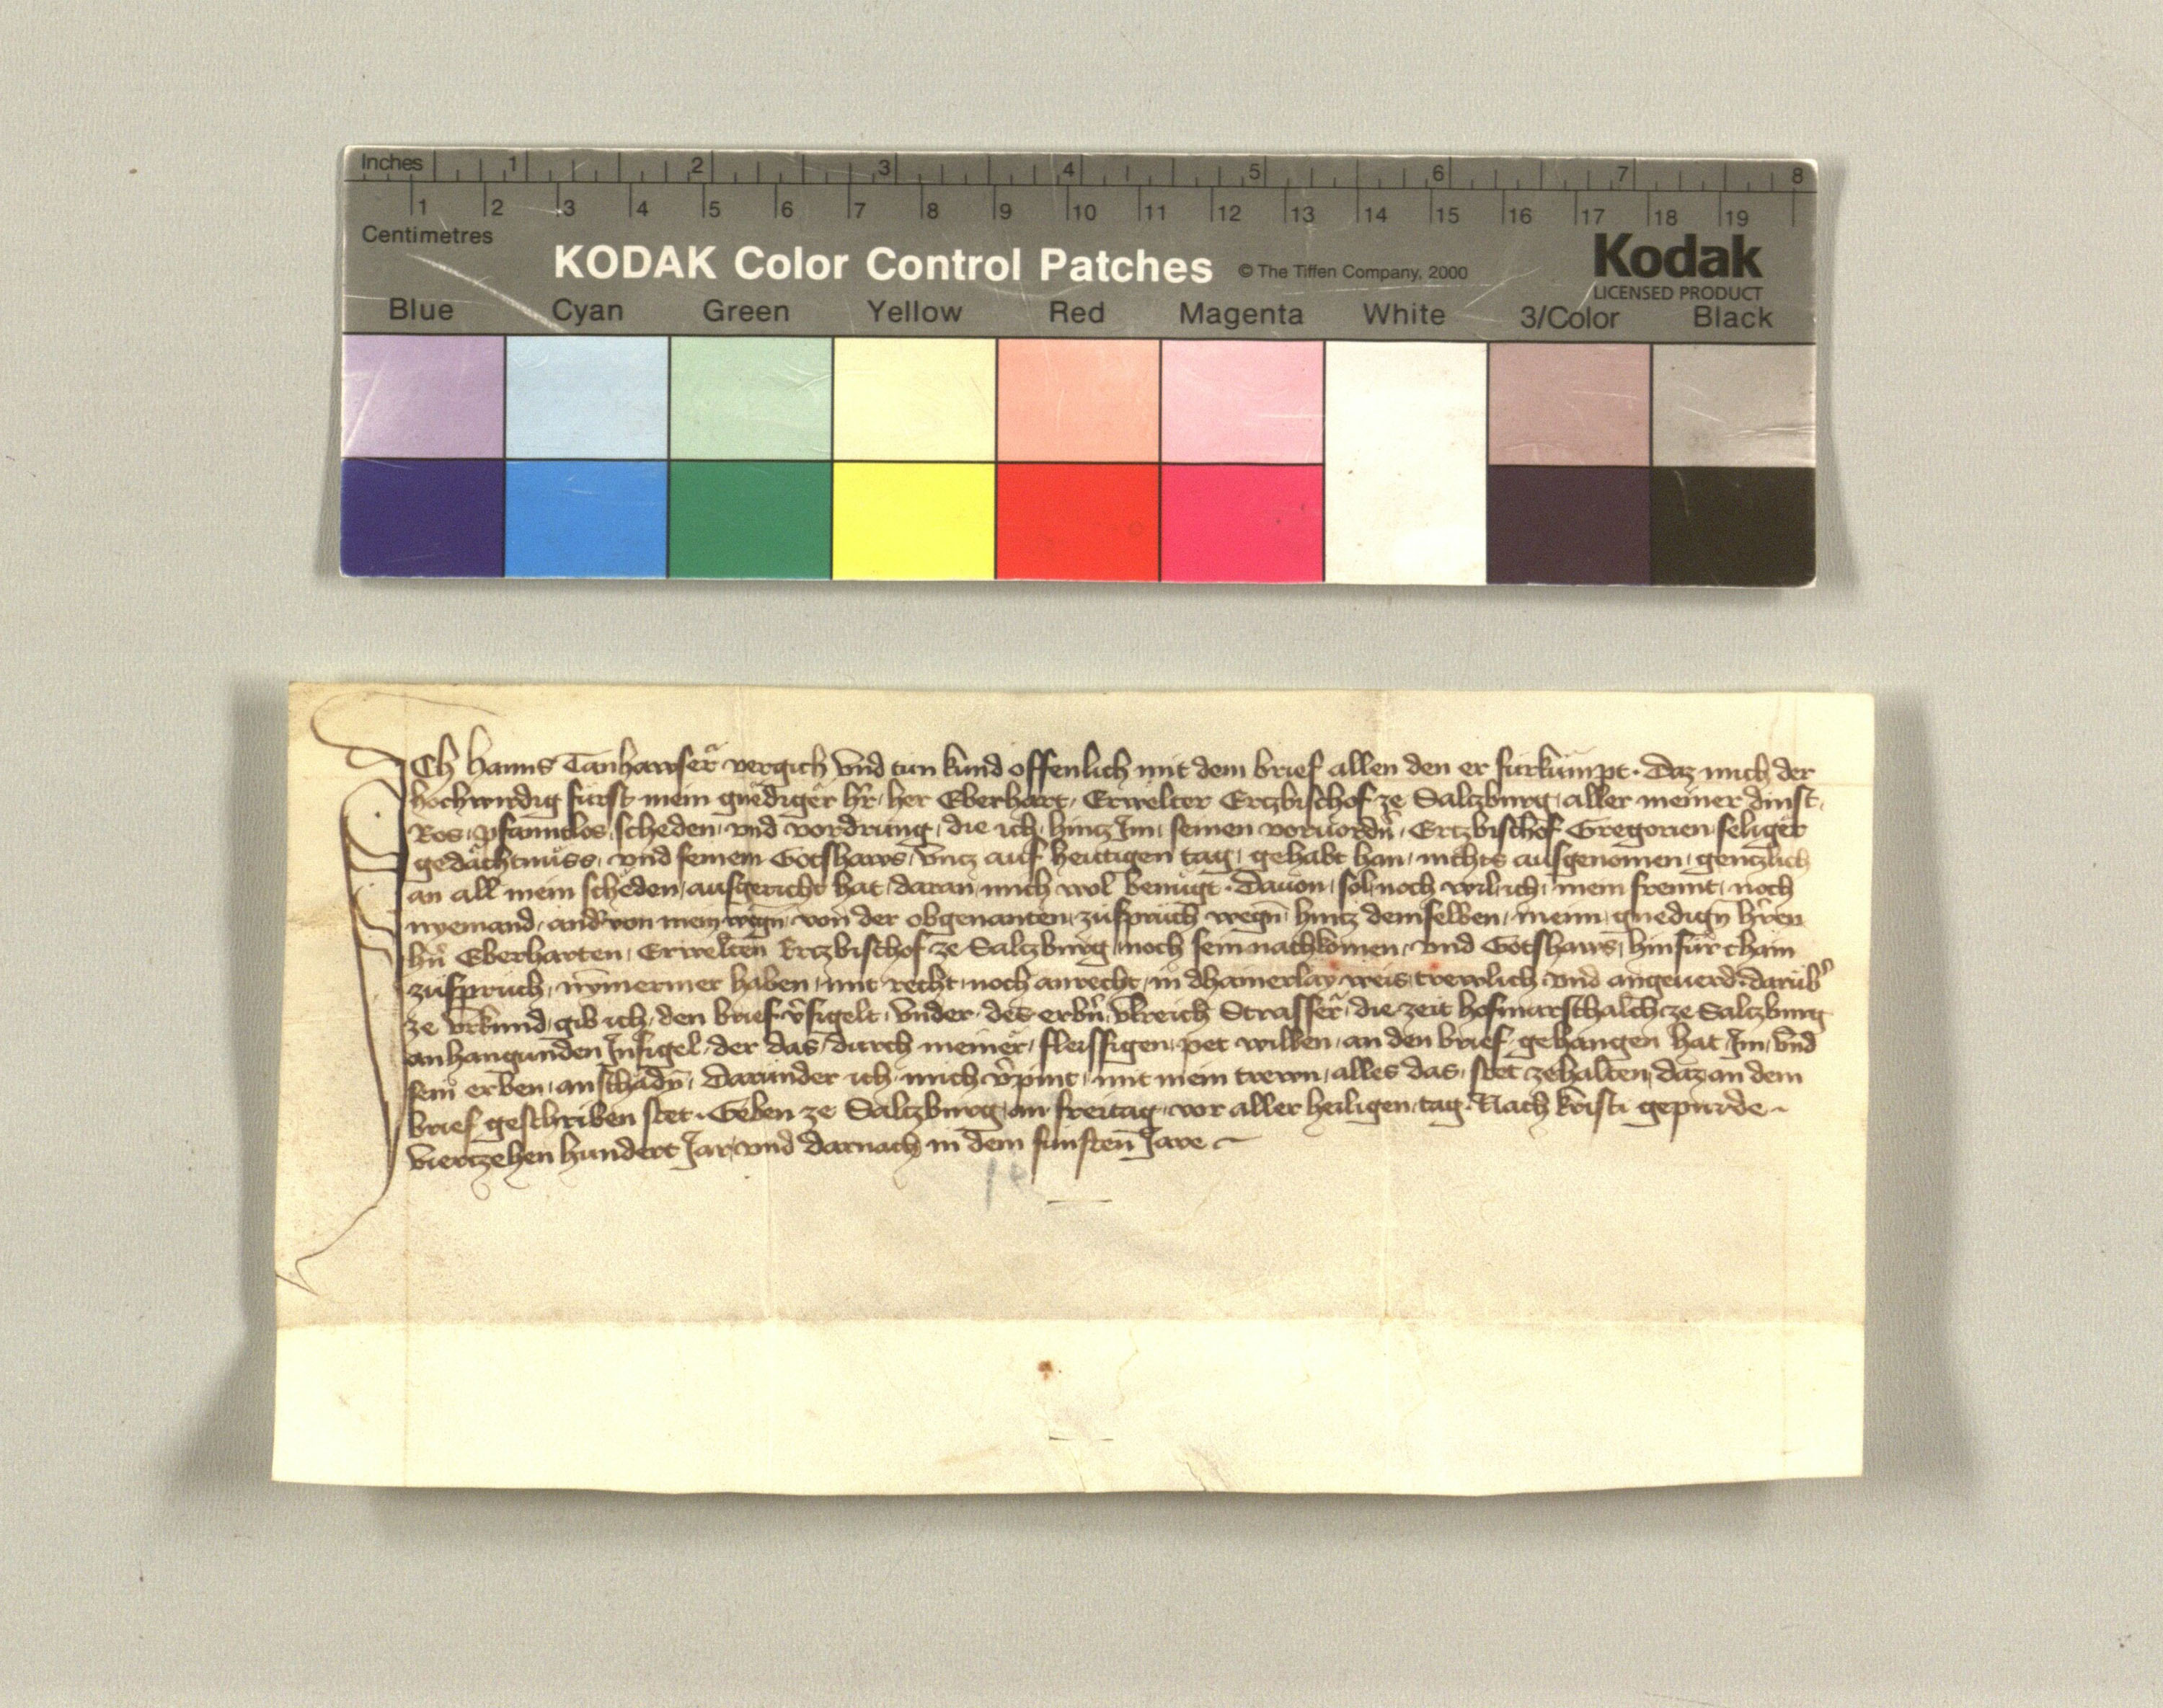 Inches 1 2 3 4 5 6 7 8
1 2 3 4 5 6 7 8 9 10 11 12 13 14 15 16 17 18 19
Centimetres
KODAK Color Control Patches © The Tiffen Company, 2000 Kodak
LICENSED PRODUCT
Blue Cyan Green Yellow Red Magenta White 3/Color Black
Ich Hanns Tanhawser vergich vnd tun kund offenlich mit dem brief allen den er furkumpt. Daz mich der
hochwirdig furst mein gnediger h̄r, her Eberhart, Erwelter Ertzbischof ze Saltzburg, aller meiner dinst,
Ros, pfanntlos, scheden, vnd vordrung, die ich, hintz Im, seinen voruordn̄, Ertzbischof Gregorien seliger
gedächtnüss, vnd seinem Gotshaws, vntz auf heutigen tag, gehabt han, nichts ausgenomen, gentzlich
an all mein scheden, ausgericht hat, daran, mich wol benugt. Dauon, sol, noch wil, ich, mein frennt, noch
nyemand, and̄ von mein wegn̄, von der obgenanten, zuspruch wegn̄, hintz demselben, meim, gnedign̄ h̄ren
hn̄ Eberharten, Erwelten Ertzbischof ze Saltzburg, noch sein nachkomen, vnd Gotshaws, hinfur chain
zuspruch, nymermer haben, mit recht, noch anrecht, in dhainerlay weis, trewlich vnd angeuerd. darub̄
ze vrkund, gib ich, den brief v̄sigelt, vnder, des erbn̄, Vlreich Strasser, die zeit hofmarschalch ze Saltzburg
anhangunden Insigel, der das, durch meiner, fleissigen, pet willen, an den brief gehangen hat, Im, vnd
sein erben, an schadn̄, Darunder ich, mich v̄pint, mit mein trewn, alles das, stet zehalten, daz an dem
brief geschriben stet. Geben ze Saltzburg, an freitag, vor aller heiligen, tag. Nach kristi gepurde
viertzehen hundert Jar, vnd darnach in dem funften Jare